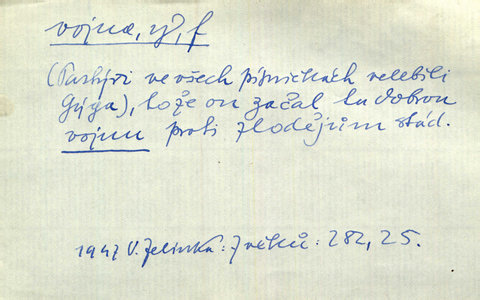 vojna, y, f
(Pastýři ve všech písničkách velebili
Gýga), kože on začal tu dobrou
vojnu proti zlodějům stád.
1947 V. Jelínka: Z věků: 282, 25.